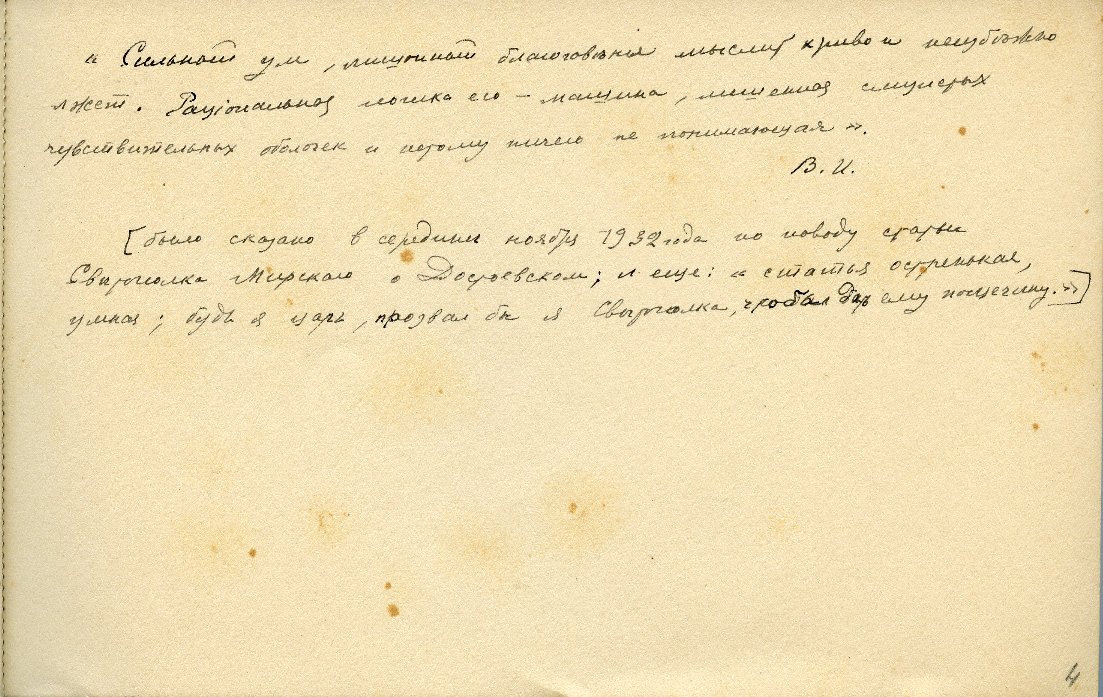 « Сильный ум, лишенный благоговѣнiя мыслит криво и неизбѣжно
лжет. Рацiональная логика его – машина, лишенная
чувствительных оболочек и потому ничего не понимающая ».
В. И.
[было сказано в середине ноября 1932 года по поводу статьи
Святополка Мирскаго о Достоевском; и еще: « статья остренькая,
умная; будь я царь, прозвал бы я Святополка, чтобы дать ему пощечину.»]
4